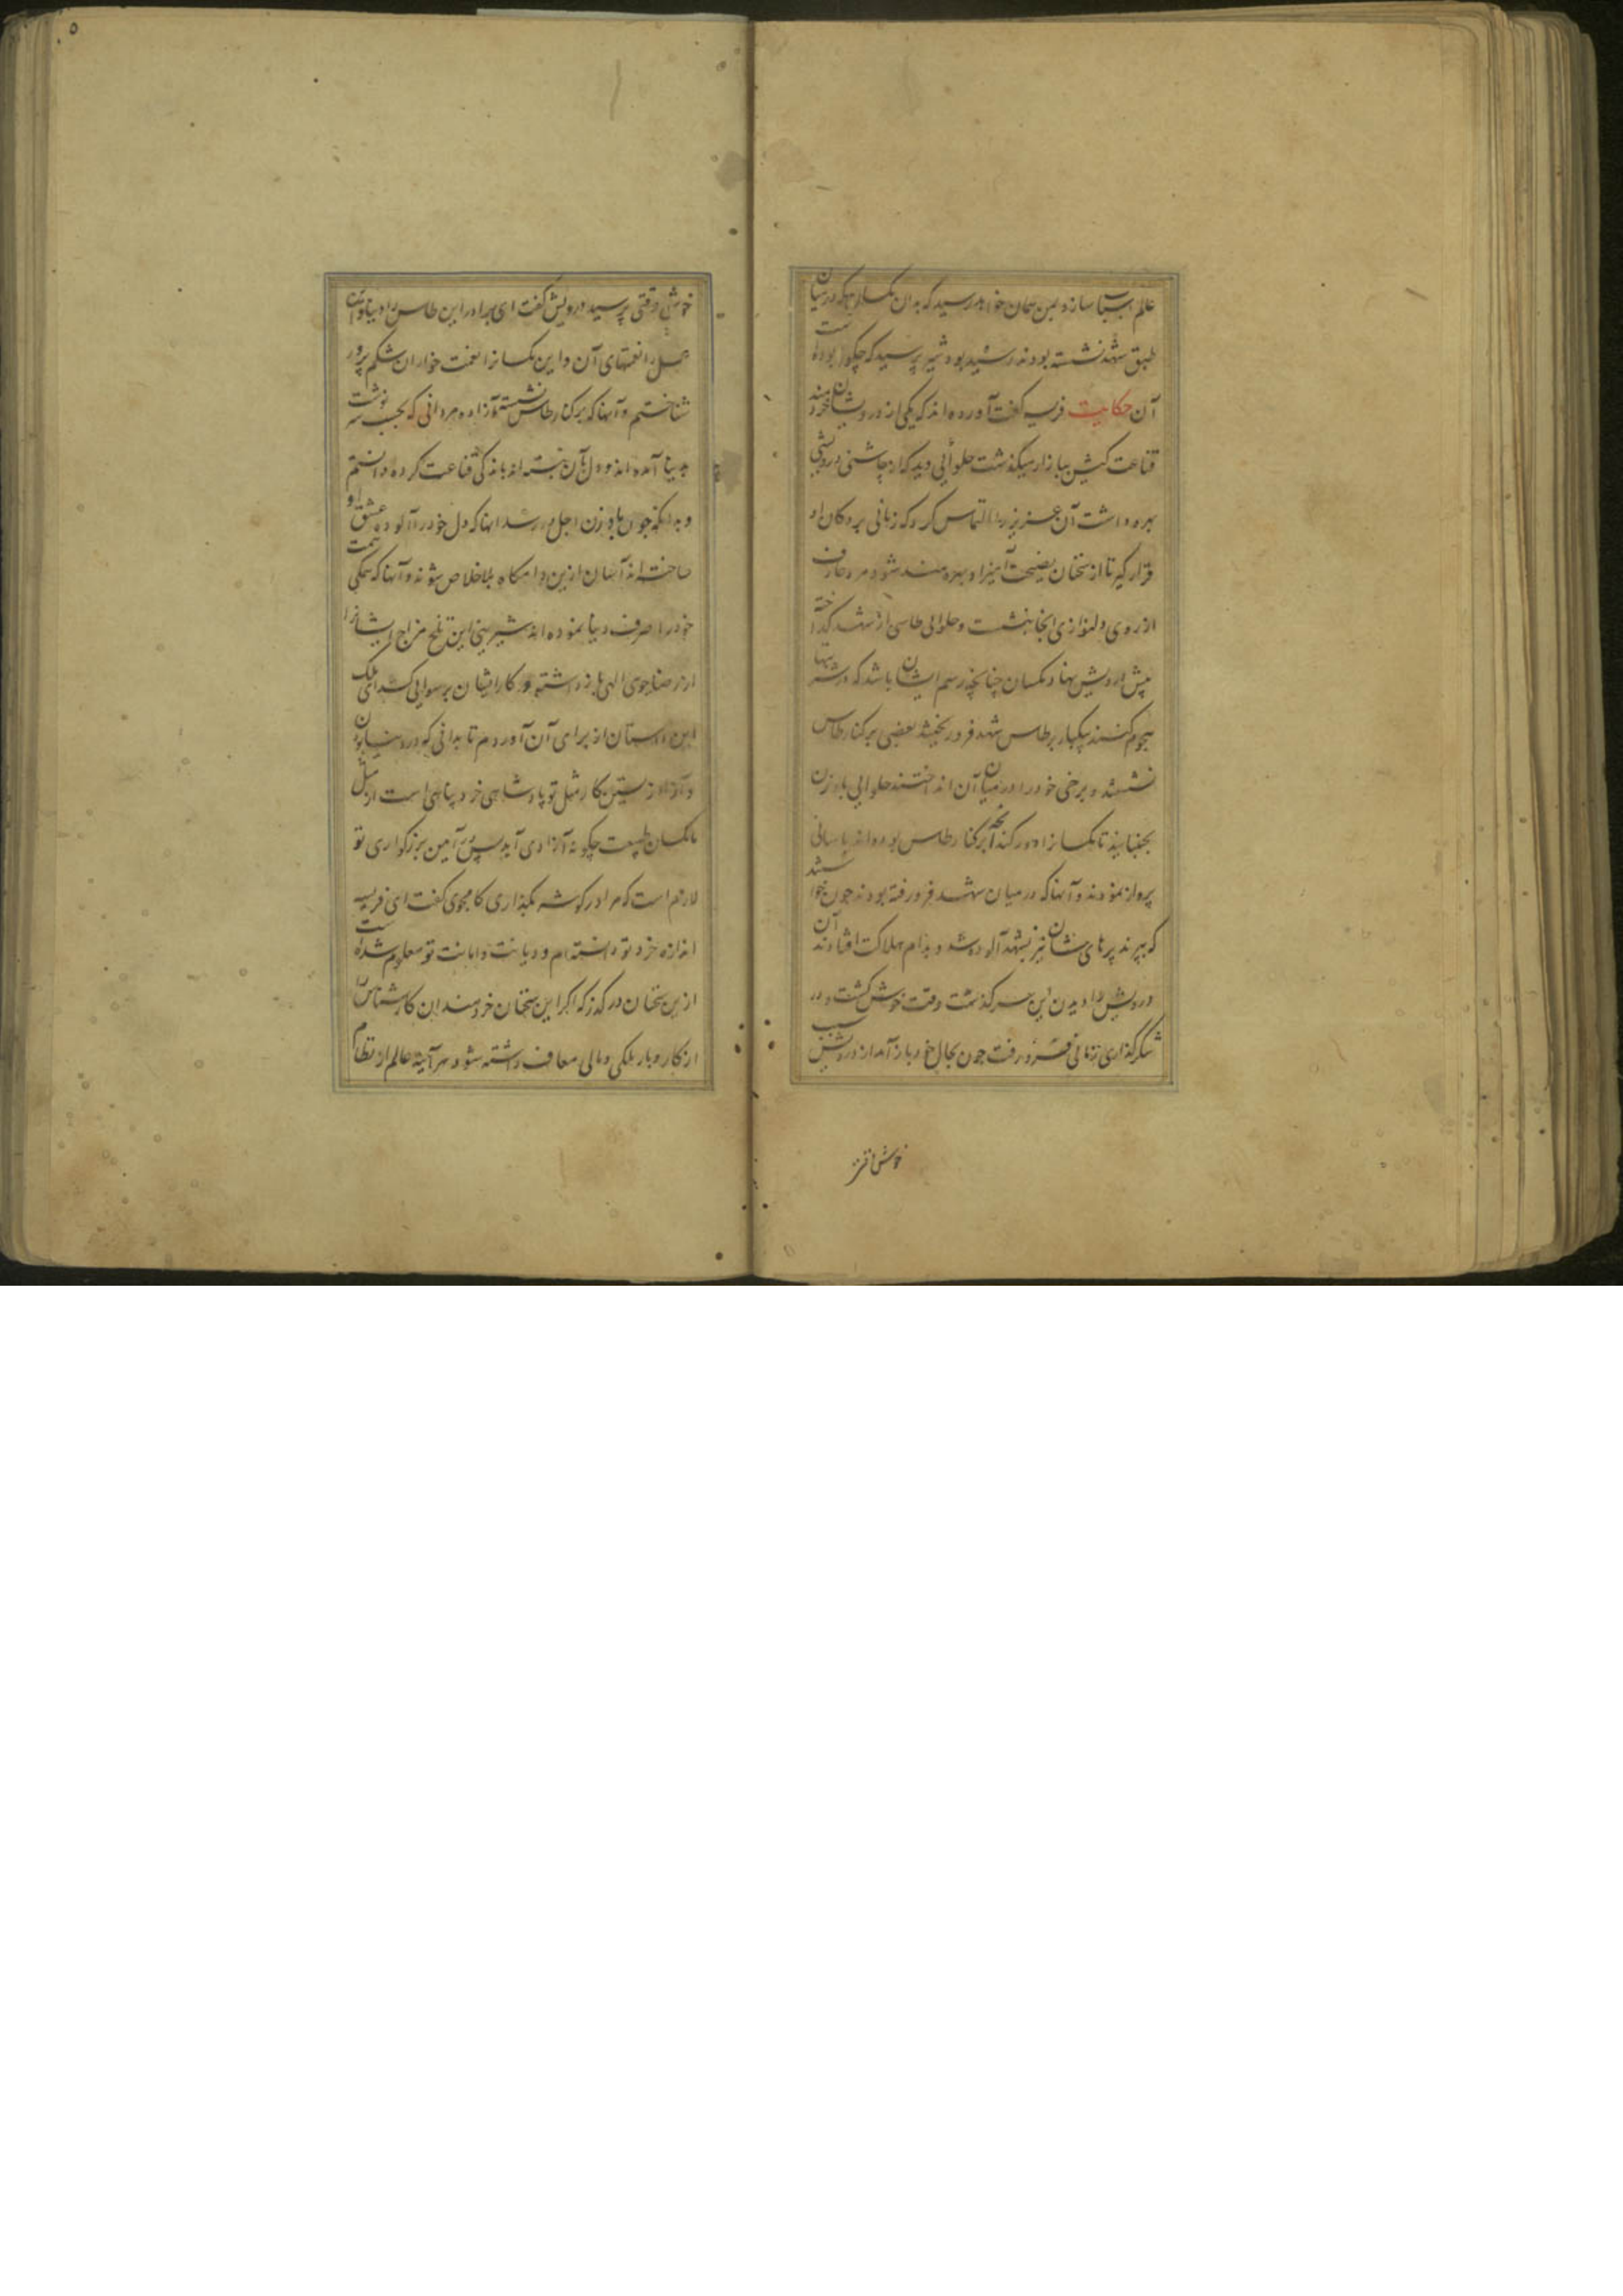 عالم اسباب سازد بمن همان خواهد رسید که بدان مکسان که در میان
طبق شهد نشسته بودند رسید بود شیر پرسید که چگونه بوده است
آن حکایت فریسه گفت آورده اند که یکی از درویشان خردمند
قناعت کیش ببازار میگذشت حلوائی دید که از چاشنی درویشی
بهره داشت آن عزیز را التماس کرد که زمانی بر دکان او
قرار گیر تا از سخنان نصیحت آمیز او بهره مند شود مرد عارف
از ره ی دلنوازی انجا بنشست و حلوائی طاسی از شهد کداخته
پیش درویش بنهاد مکسان چنانچه رسم ایشان باشد که در شیرینیها
هجوم کنند یکبار بر طاس شهد فرو ریختند بعضی بر کنار طاس
نشستند و برخی خود را در میان آن انداختند حلوائی بادزن
بجنبانید تا مکسانرا دور کند آنچه بر کنار طاس بوده اند باسانی
پرواز نمودند و آنها که در میان شهد فرو رفته بودند چون خواستند
که بپرند پرهای شان نیز بشهد آلوده شد و بدام هلاکت افتادند آن
درویش را دیدن این سرگذشت وقت خوش گشت و در
شکرگذاری زمانی فرو رفت چون بحال خود باز آمد از درویش سبب
خوش وقتی
۵
خوش وقتی پرسید درویش گفت ای برادر این طاس را دنیا و این
عسل را نعمتهای آن و این مکسانرا نعمت خواران شکم پرور
شناختم و آنها که بر کنار طاس نشسته آزاده مردانی که بحسب سرنوشت
بدنیا آمده اند و دل بآن نبسته اند باندکی قناعت کرده دانستم
و بدانکه چون بادزن اجل در رسد انها که دل خود را آلوده عشق او
ساخته اند آسان ازین دامگاه بلا خلاص شوند و آنها که همگی همت
خود را صرف دنیا نموده اند شیرینی این تلخ مزاج ایشانرا
از رضاجوی الهی باز داشته و کار ایشان برسوایی کشد ای ملک
این داستان از برای آن آوردم تا بدانی که در دنیا بودن
و آزاد زیستن کار مثل تو پادشاهی خرد پناهی است از مثل
ما کسان طبیعت چگونه آزادی آید پس بر آیین بزرگواری تو
لازم است که مرا در گوشه بگذاری کامجوی گفت ای فریسه
اندازه خرد تو دانسته ام و دیانت و امانت تو معلوم شده است
ازین سخنان در گذر که اگر این سخنان خردمندان کار شناس را
از کار و بار ملکی و مالی معاف داشته شود هر آینه عالم از نظام